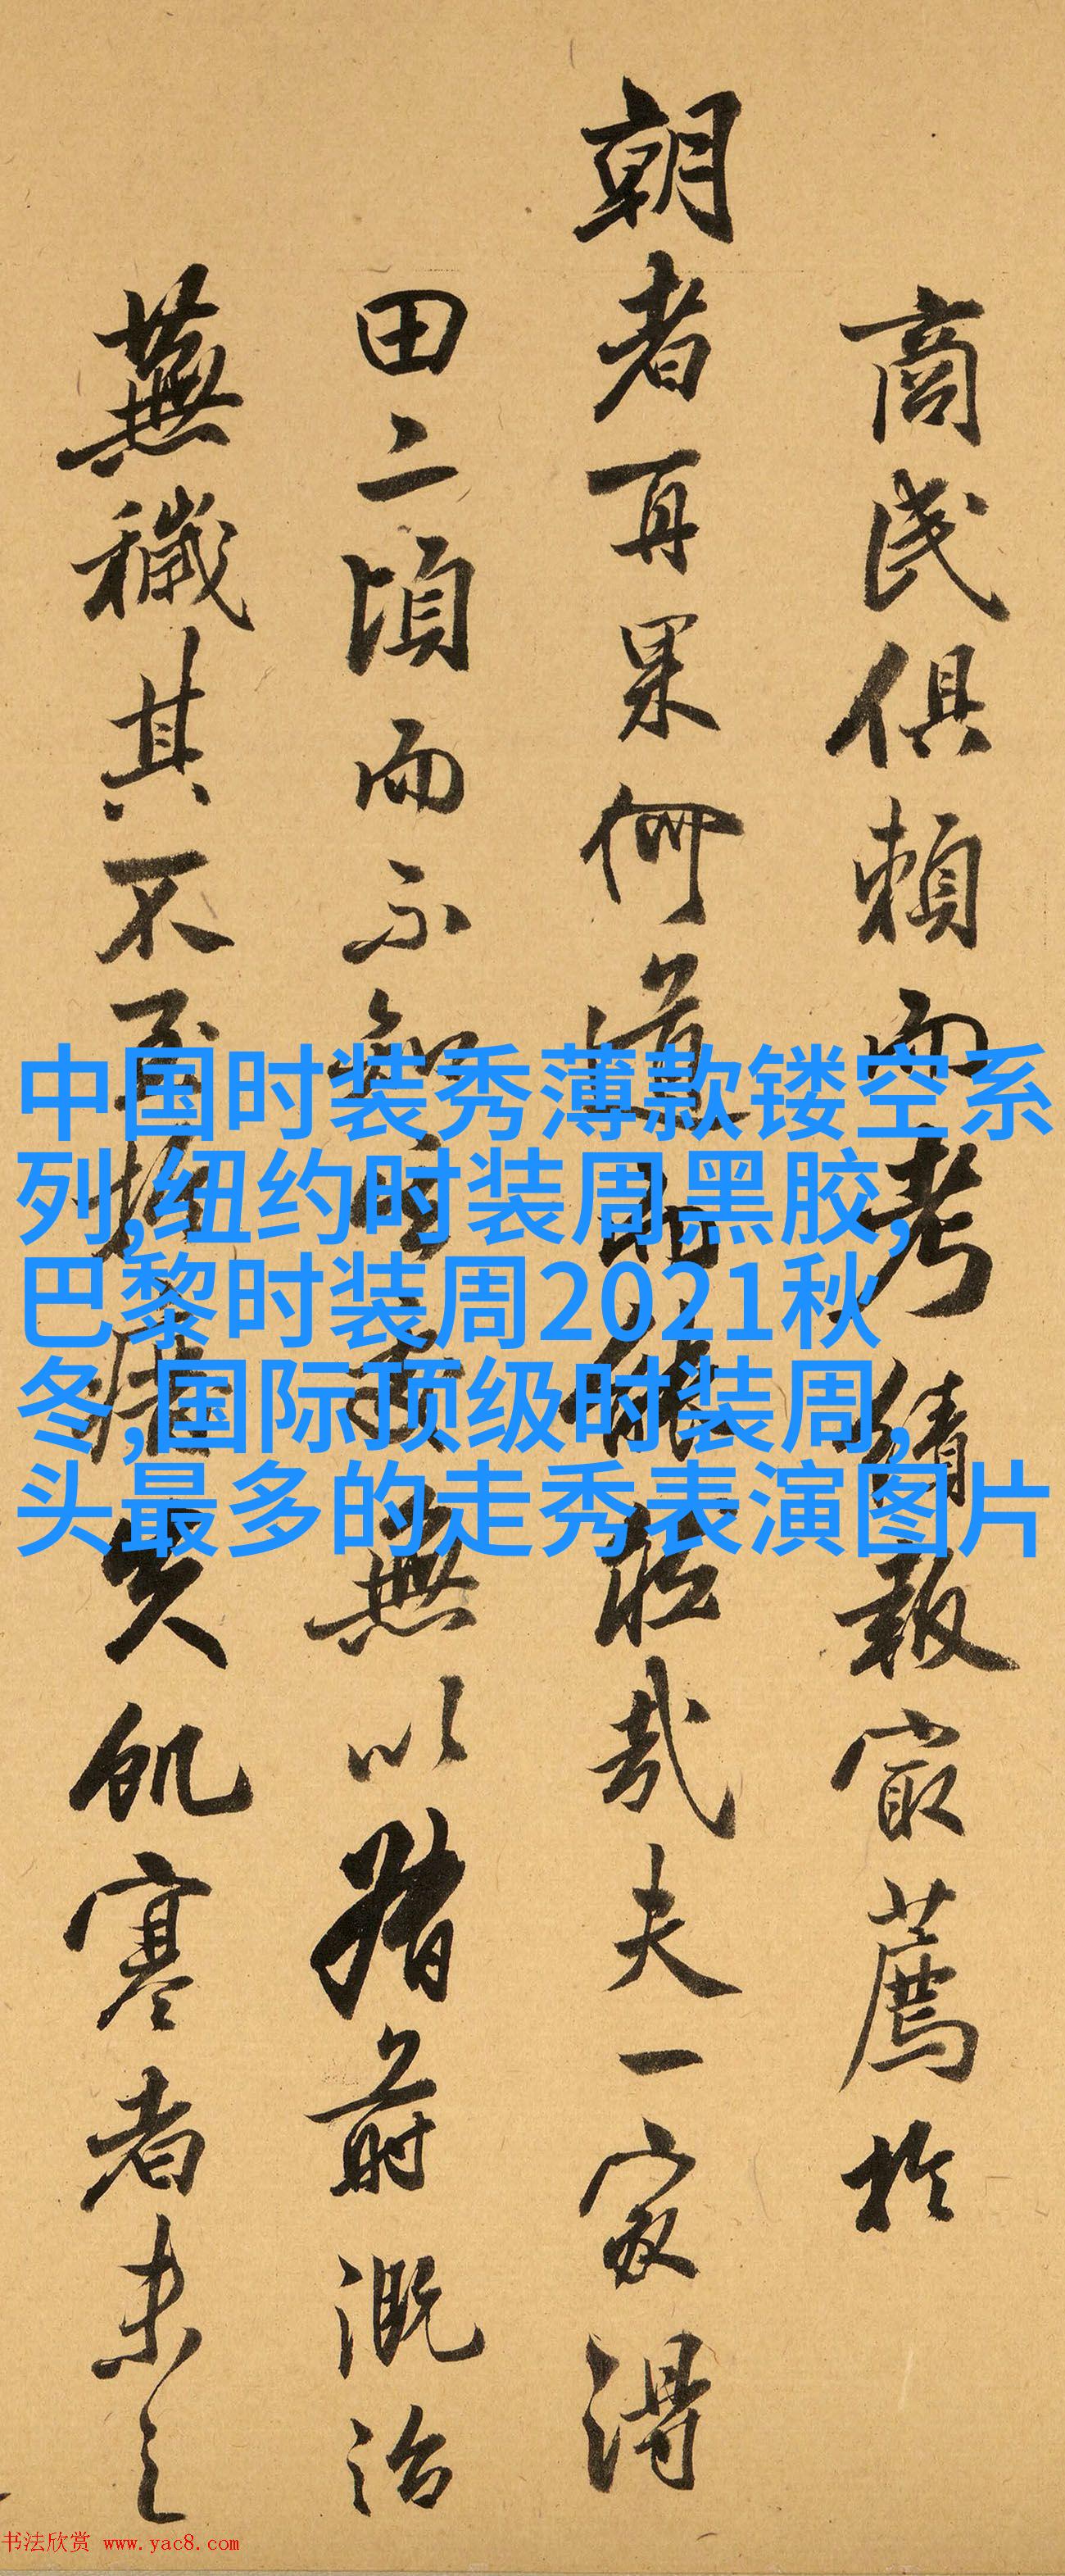 商民俱賴而考績報最薦於
朝者再果何道哉夫一家得
田二頃而不知無以時溉治
蕪穢其不至飢寒者未之
中国时装秀薄款镂空系
列,纽约时装周黑胶,
巴黎时装周2021秋
冬,国际顶级时装周,
头最多的走秀表演图片
书法欣赏 www.yac8.com